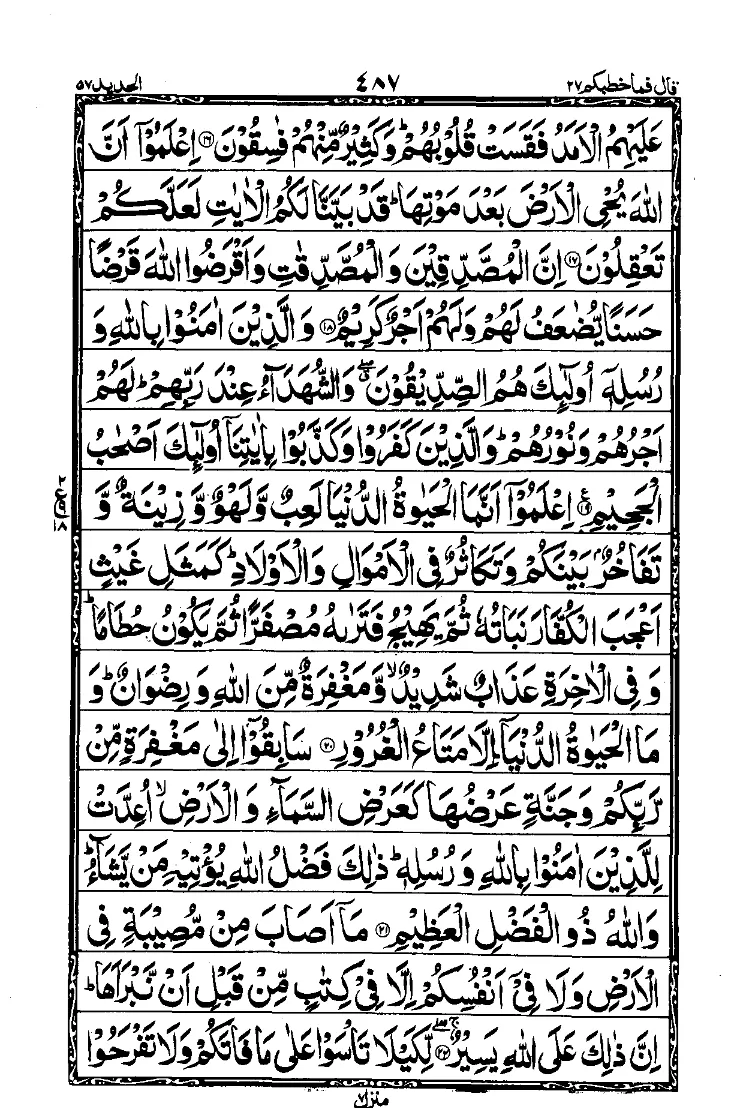 قال فما خطبكم ۲۷ ٤٨٧ الحديد ۵۷
عَلَيْهِمُ الْاَمَدُ فَقَسَتْ قُلُوْبُهُمْ ؕ وَكَثِيْرٌ مِّنْهُمْ فٰسِقُوْنَ ﴿۱۶﴾ اِعْلَمُوْۤا اَنَّ
اللّٰهَ يُحْيِ الْاَرْضَ بَعْدَ مَوْتِهَا ؕ قَدْ بَيَّنَّا لَكُمُ الْاٰيٰتِ لَعَلَّكُمْ
تَعْقِلُوْنَ ﴿۱۷﴾ اِنَّ الْمُصَّدِّقِيْنَ وَالْمُصَّدِّقٰتِ وَاَقْرَضُوا اللّٰهَ قَرْضًا
حَسَنًا يُّضٰعَفُ لَهُمْ وَلَهُمْ اَجْرٌ كَرِيْمٌ ﴿۱۸﴾ وَالَّذِيْنَ اٰمَنُوْا بِاللّٰهِ وَ
رُسُلِهٖۤ اُولٰٓئِكَ هُمُ الصِّدِّيْقُوْنَ ۖۗ وَالشُّهَدَآءُ عِنْدَ رَبِّهِمْ ؕ لَهُمْ
اَجْرُهُمْ وَنُوْرُهُمْ ؕ وَالَّذِيْنَ كَفَرُوْا وَكَذَّبُوْا بِاٰيٰتِنَاۤ اُولٰٓئِكَ اَصْحٰبُ
الْجَحِيْمِ ﴿۱۹﴾ اِعْلَمُوْۤا اَنَّمَا الْحَيٰوةُ الدُّنْيَا لَعِبٌ وَّلَهْوٌ وَّزِيْنَةٌ وَّ
تَفَاخُرٌۢ بَيْنَكُمْ وَتَكَاثُرٌ فِى الْاَمْوَالِ وَالْاَوْلَادِ ؕ كَمَثَلِ غَيْثٍ
اَعْجَبَ الْكُفَّارَ نَبَاتُهٗ ثُمَّ يَهِيْجُ فَتَرٰىهُ مُصْفَرًّا ثُمَّ يَكُوْنُ حُطَامًا ؕ
وَفِى الْاٰخِرَةِ عَذَابٌ شَدِيْدٌ ۙ وَّمَغْفِرَةٌ مِّنَ اللّٰهِ وَرِضْوَانٌ ؕ وَ
مَا الْحَيٰوةُ الدُّنْيَاۤ اِلَّا مَتَاعُ الْغُرُوْرِ ﴿۲۰﴾ سَابِقُوْۤا اِلٰى مَغْفِرَةٍ مِّنْ
رَّبِّكُمْ وَجَنَّةٍ عَرْضُهَا كَعَرْضِ السَّمَآءِ وَالْاَرْضِ ۙ اُعِدَّتْ
لِلَّذِيْنَ اٰمَنُوْا بِاللّٰهِ وَرُسُلِهٖ ؕ ذٰلِكَ فَضْلُ اللّٰهِ يُؤْتِيْهِ مَنْ يَّشَآءُ ؕ
وَاللّٰهُ ذُو الْفَضْلِ الْعَظِيْمِ ﴿۲۱﴾ مَاۤ اَصَابَ مِنْ مُّصِيْبَةٍ فِى
الْاَرْضِ وَلَا فِىْۤ اَنْفُسِكُمْ اِلَّا فِىْ كِتٰبٍ مِّنْ قَبْلِ اَنْ نَّبْرَاَهَا ؕ
اِنَّ ذٰلِكَ عَلَى اللّٰهِ يَسِيْرٌ ﴿۲۲﴾ لِّكَيْلَا تَاْسَوْا عَلٰى مَا فَاتَكُمْ وَلَا تَفْرَحُوْا
منزل ۷